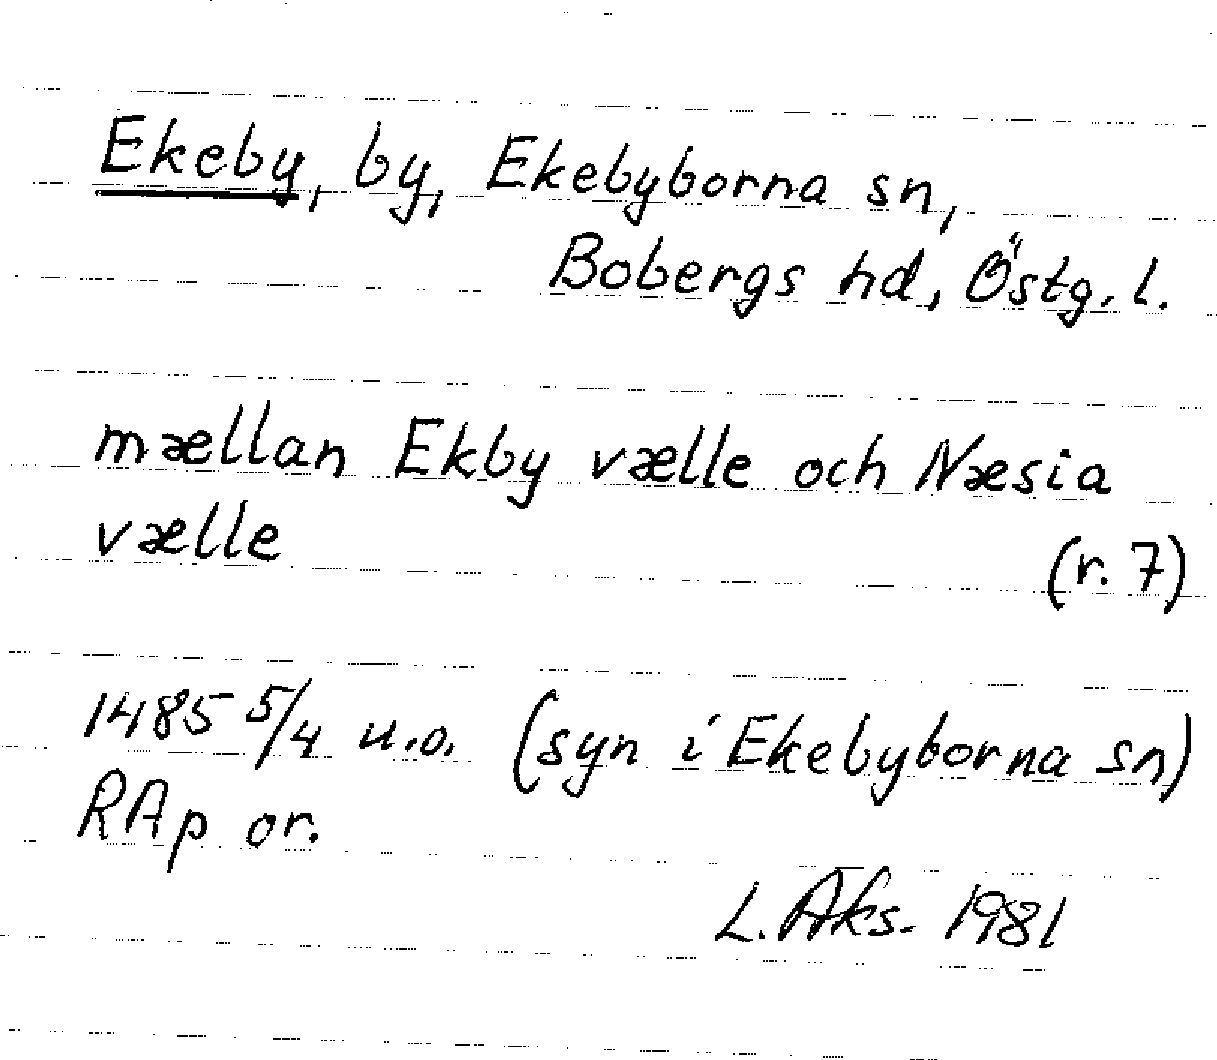 Ekeby, by, Ekebyborna sn,
Bobergs hd, Östg. l.
mællan Ekby vælle och Næsia
vælle (r. 7)
1485 5/4 u.o. (syn i Ekebyborna sn)
RAp or.
L. Aks. 1981